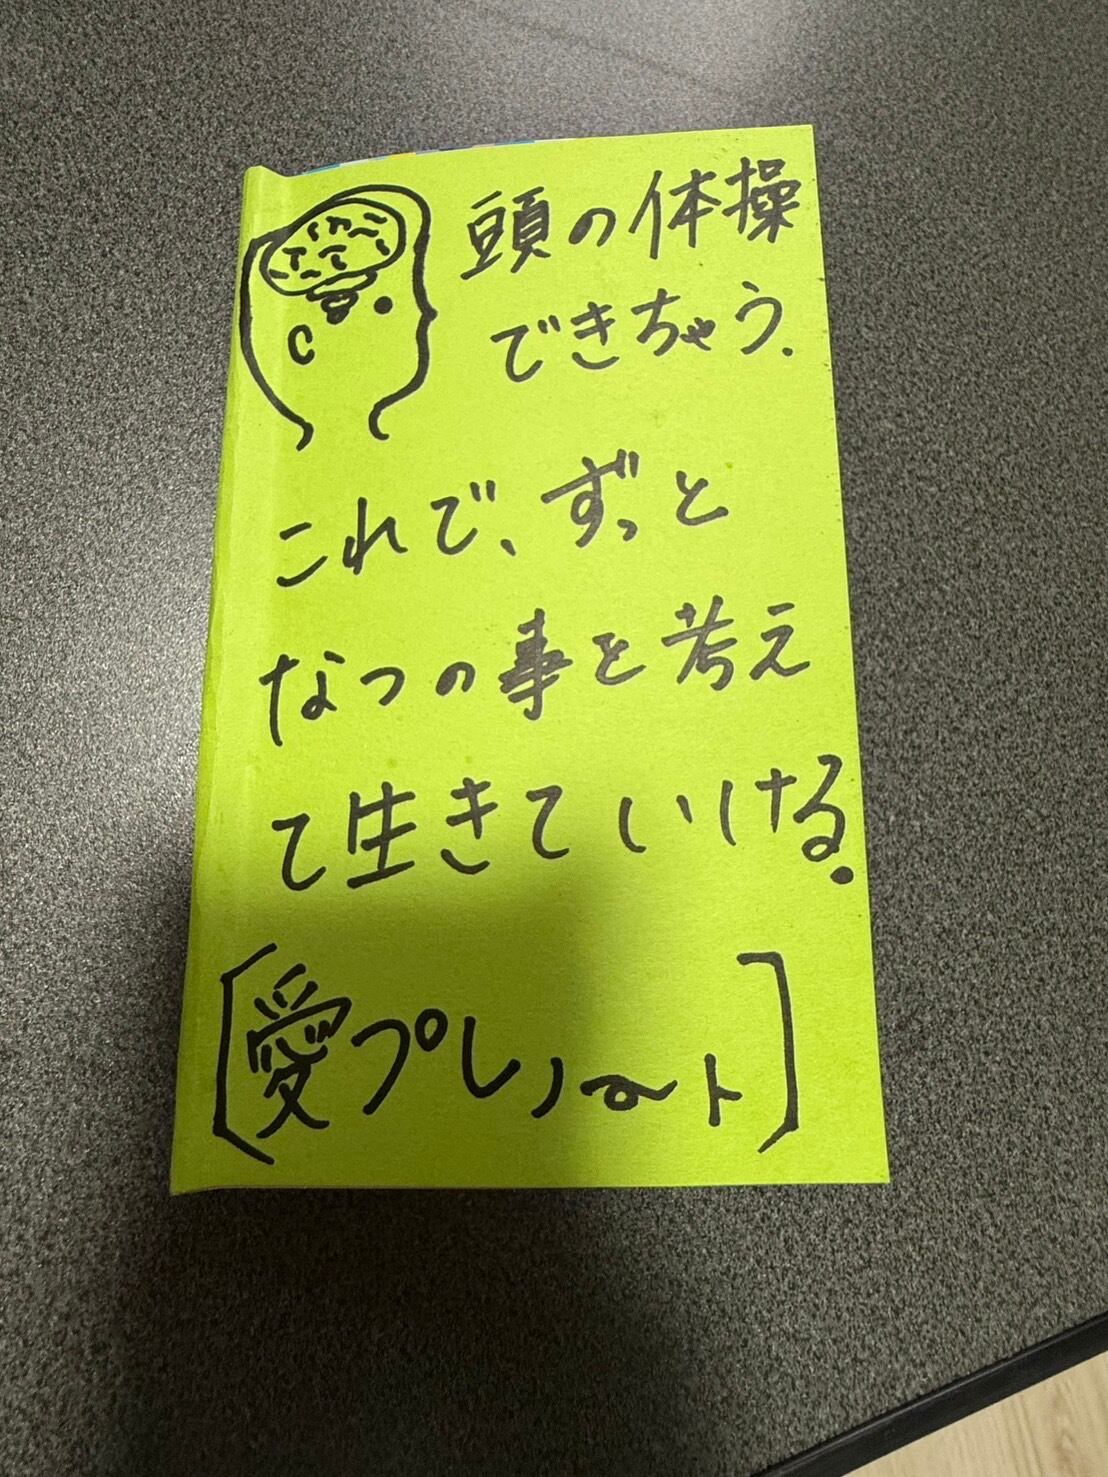 頭の体操
できちゃう.
これで、ずっと
なつの事を考え
て生きていける.
[愛プレノート]